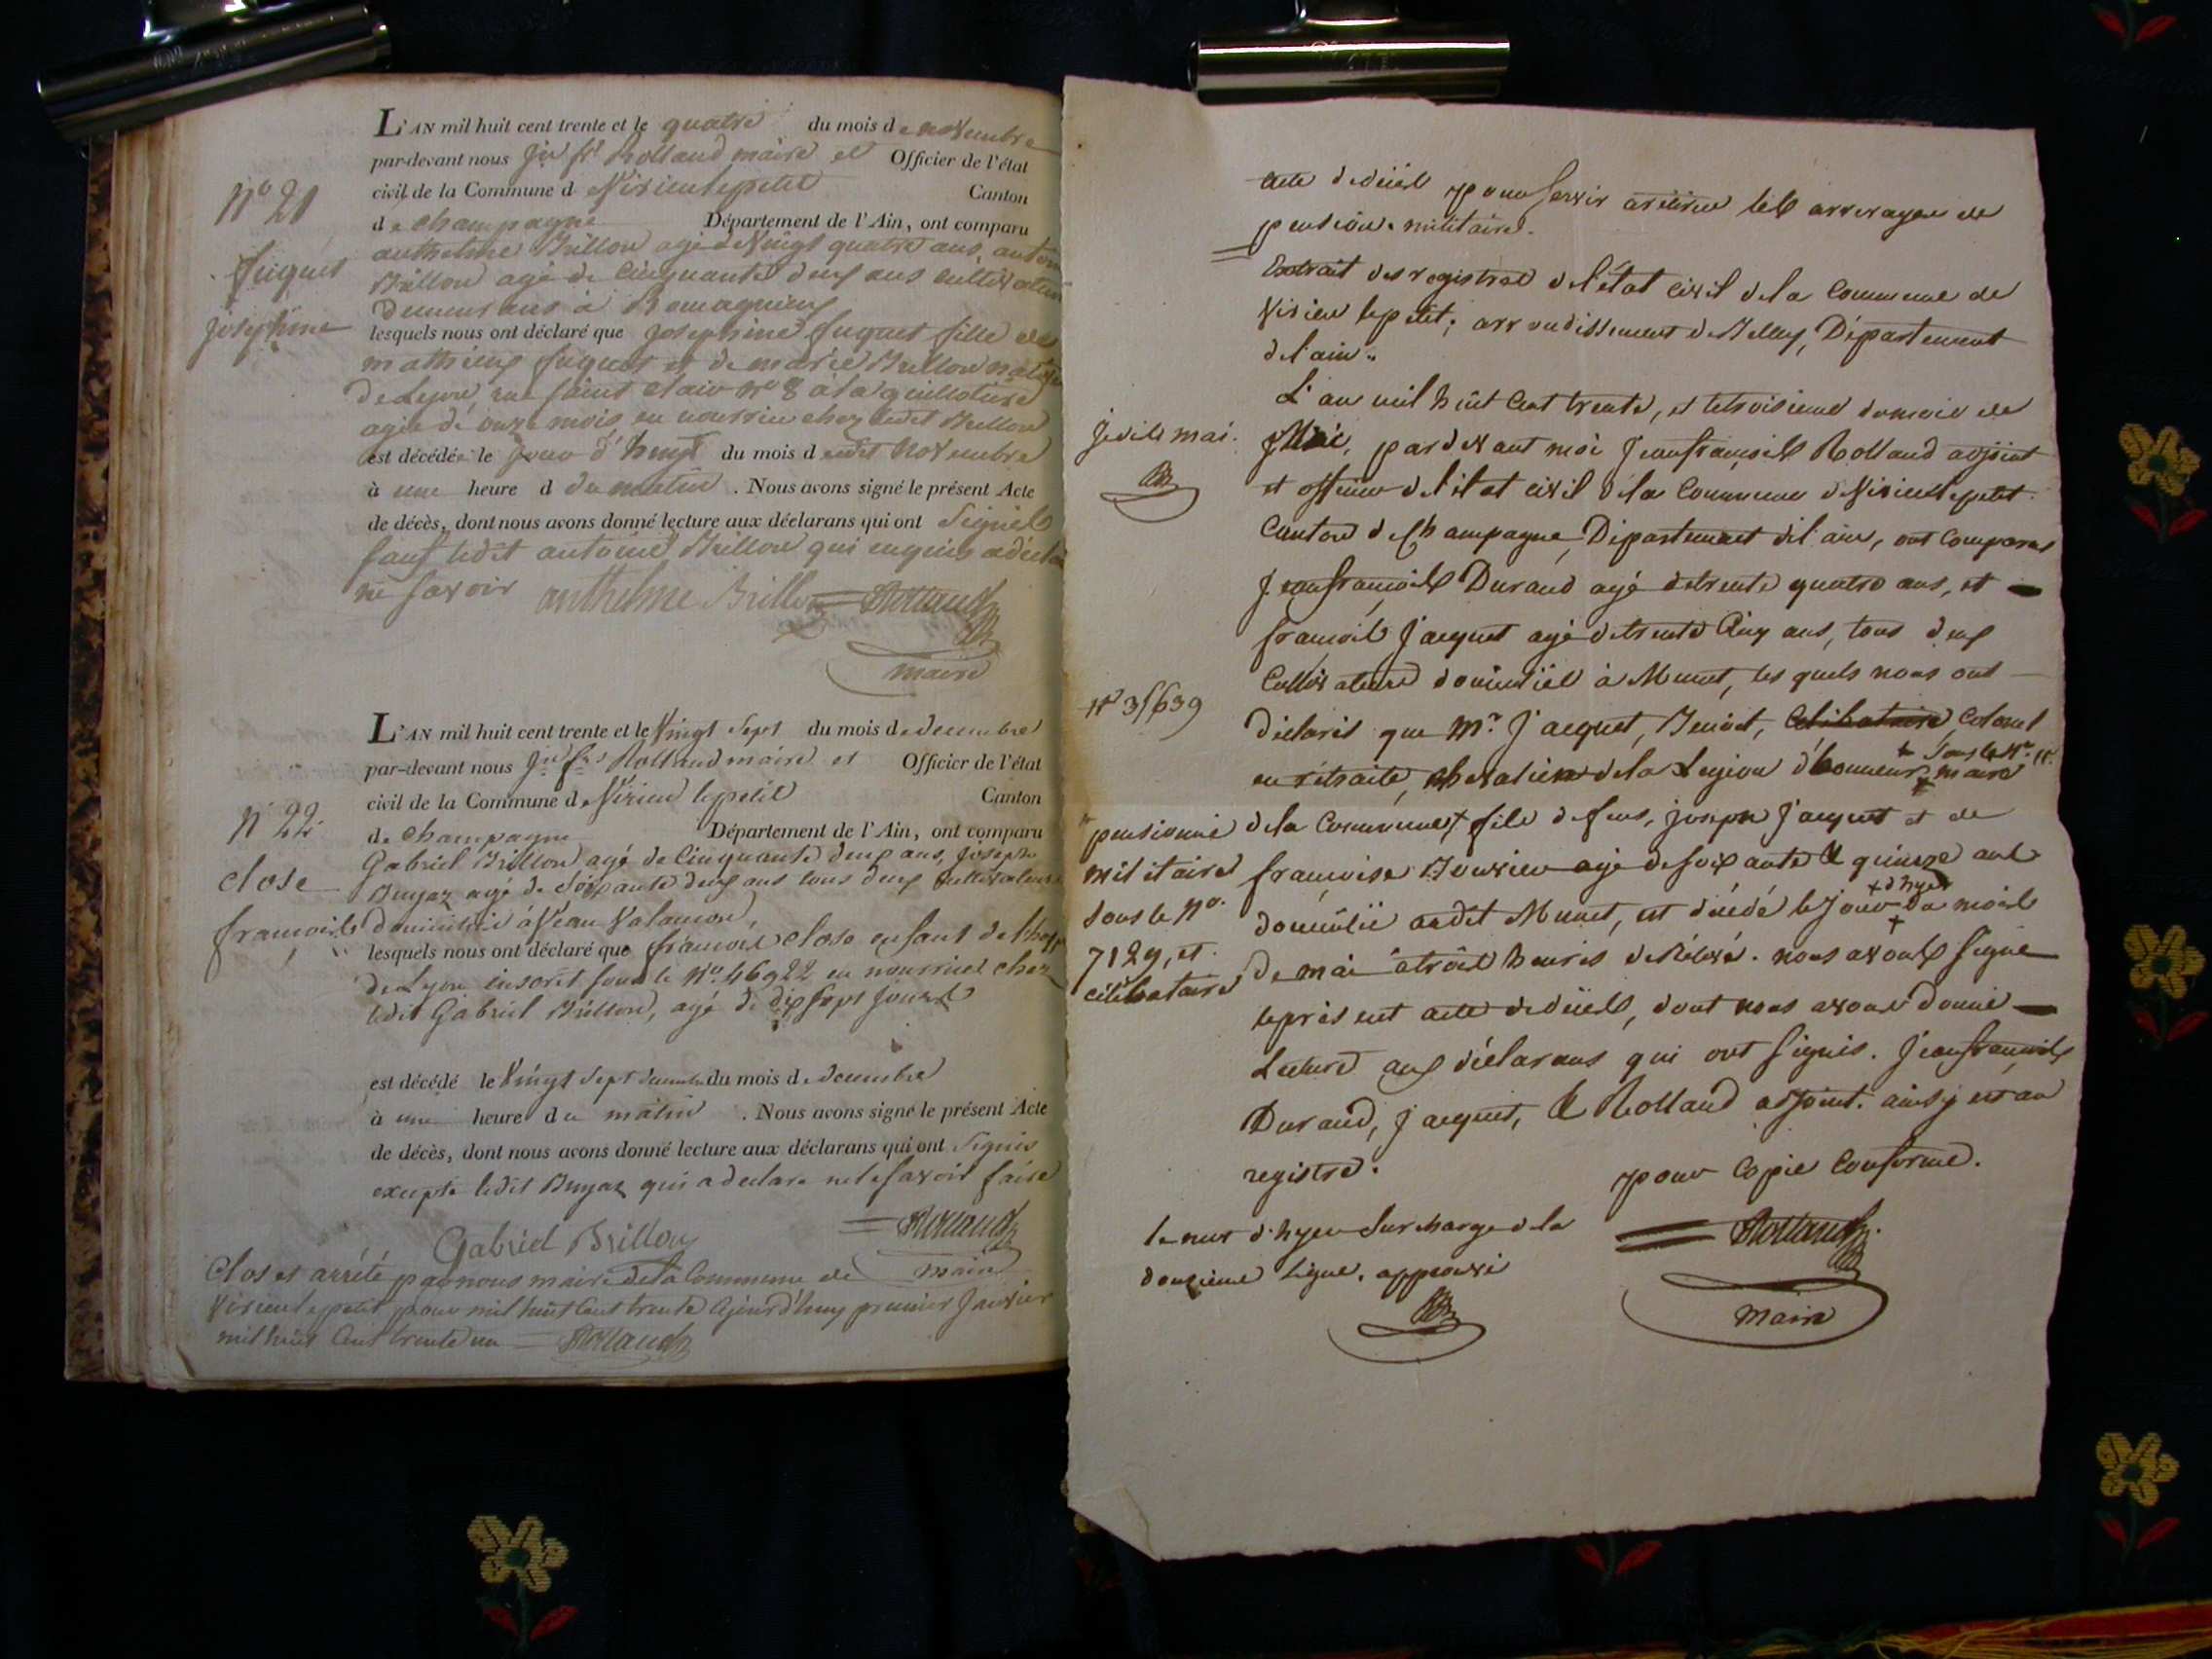 L'AN mil huit cent trente et le quatre du mois de novembre
par-devant nous Jn fs Rolland maire et Officier de l'état
civil de la Commune d Virieulepetit Canton
de champagne Département de l'Ain, ont comparu
N° 21
anthelme Brillon agé de Vingt quatre ans, antoine
fuguet
Brillon agé de Cinquante deux ans cultivateurs
demeurans à Romagnieux
josephine
lesquels nous ont déclaré que josephine fuguet fille de
mathieux fuguet et de marie Brillon
de Lyon, rue saint clair n° 8 à la guillotiere
agée de onze mois, en nourrice chez ledit Brillon
est décédée le jour d'huy du mois dudit Novembre
à une heure d du matin . Nous avons signé le présent Acte
de décès, dont nous avons donné lecture aux déclarans qui ont Signés
sauf ledit antoine Brillon qui enquis a déclaré
ne savoir anthelme Brillon Rolland
maire
L'AN mil huit cent trente et le Vingt Sept du mois de decembre
par-devant nous Jn fs Rolland maire et Officier de l'état
civil de la Commune d Virieu lepetit Canton
N° 22
de champagne Département de l'Ain, ont comparu
Gabriel Brillon agé de Cinquante deux ans, joseph
close
agé de Soixante deux ans tous deux cultivateurs
francoise
domiciliés à
lesquels nous ont déclaré que francoise close enfant de l'hopi
de Lyon inscrit sous le N° 46922 en nourrice chez
ledit Gabriel Brillon, agé de dix sept jours
est décédé le Vingt Sept du mois de decembre
à une heure du matin . Nous avons signé le présent Acte
de décès, dont nous avons donné lecture aux déclarans qui ont Signés
excepté ledit qui a declaré ne le savoir faire
Gabriel Brillon Rolland
maire
Clos et arrété par nous maire de la Commune de
Virieulepetit pour mil huit Cent trente Ajourd'huy premier Janvier
mil huit Cent trente un Rolland
acte de décès pour servir les arrerages de
pension militaire.
Extrait des registres de l'état Civil de la Commune de
Virieu lepetit, arrondissement de Belley, Département
de l'ain.
L'an mil huit Cent trente, et le troisieme du mois de
je dis mai.
Mai, pardevant moi Jeanfrançois Rolland adjoint
et officier de l'état civil de la Commune de Virieulepetit
Canton de Champagne, Département de l'ain, ont Comparus
Jeanfrançois Durand agé de trente quatre ans, et
françois Jacquet agé de trente Cinq ans, tous deux
Cultivateurs domiciliés à Munet, lesquels nous ont
N° 35639
Déclarés que Mr. Jacquet, Benoit, Celibataire, Colonel
+ Sous le N°.
en rétraite, chevalier de la Legion d'honneur, maire
pensionné
de la Commune, fils de feus, joseph Jacquet et de
militaire
françoise Bouvier agé de soixante & quinze ans
+ d'hyer
sous le N°.
domicilié audit Munet, est décédé le jour du mois
7129, et
de mai à trois heures de Relevé. nous avons signé
célibataire
leprésent acte de décès, dont nous avons donné
Lecture aux déclarans qui ont signés. Jeanfrançois
Durand, Jacquet, & Rolland adjoint. ainsy est au
registre.
pour Copie Conforme.
le mot d'hyer Surchargé de la
Rolland
douzieme Ligne. approuvé
Maire